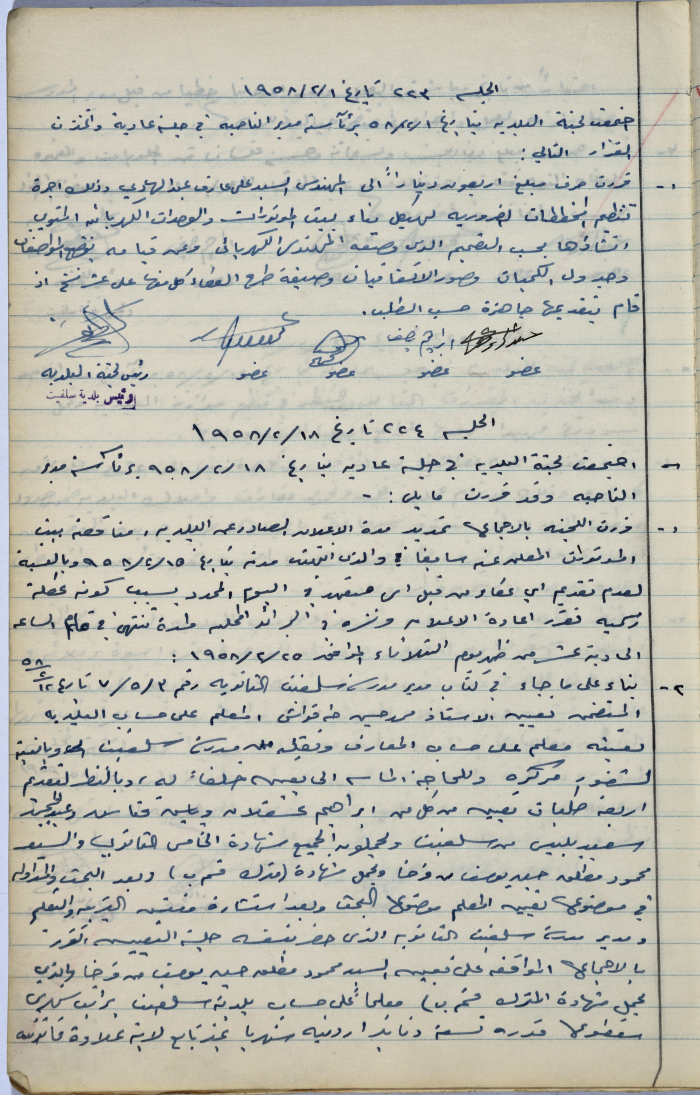 الجلسه ٢٢٣ تاريخ ١٩٥٨/٢/١
اجتمعت لجنة البلديه بتاريخ ٥٨/٢/١ برئاسة مدير الناحيه في جلسة عادية واتخذت
القرار التالي :
١- قررت صرف مبلغ اربعون ديناراً الى المهندس السيد علي عارف عبد الهادي وذلك اجرة
تنظيم المخططات الضروريه لهيكل بناء لبيت الموتورات والوحدات الكهربائيه المنوي
انشاؤها بحسب التصميم الذي وضعه المهندس الكهربائي وعند قيامه بوضع المواصفات
وجدول الكميات وصور الاتفاقيات وصيغة طرح العطاء كل منها على عشر نسخ اذ
قام بتقديمها جاهزة حسب الطلب .
عضو عضو عضو عضو رئيس لجنة البلديه
رئيس بلدية سلفيت
الجلسه ٢٢٤ تاريخ ١٩٥٨/٢/١٨
- اجتمعت لجنة البلديه في جلسة عاديه بتاريخ ٩٥٨/٢/١٨ برئاسة مدير
الناحيه وقد قررت ما يلي : -
١- قررت اللجنه بالاجماع تمديد مدة الاعلان الصادر عن البلديه ، مناقصة بيت
الموتورات المعلن عنه سابقا والذي انتهت مدته بتاريخ ٩٥٨/٢/١٥ وبالنسبة
لعدم تقديم اي عطاء من قبل اي متعهد في اليوم المحدد بسبب كونه عطلة
رسميه تقرر اعادة الاعلان ونشره في الجرائد المحليه ولمدة تنتهي في تمام الساعه
الحادية عشر من ظهر يوم الثلاثاء الموافق ١٩٥٨/٢/٢٥ :
٢- بناء على ما جاء في كتاب مدير مدرسة سلفيت الثانويه رقم ٧/٥/٣ تاريخ ٥٨/٢/١٢
المتضمن تعيين الاستاذ محمد حسين طه قراقش المعلم على حساب البلديه
تعينه معلم على حساب المعارف ونقله من مدرسة سلفيت وبالنسبة
لشغور مركزه وللحاجة الماسه الى تعيين خلفاً له ، وبالنظر لتقديم
اربعة طلبات تعيين من كل من ابراهيم عسقلان و
سعيد بلبيس من سلفيت ويحملون الجميع شهادة الخامس الثانوي والسيد
محمود مطلق حسن يوسف من فرخا ويحمل شهادة (مترك قسم ب) وبعد البحث والمداوله
في موضوع تعيين المعلم موضوع البحث وبعد استشارة مفتش التربيه والتعليم
ومدير مدرسة سلفيت الثانويه الذي حضر بنفسه جلسة التعيين تقرر
بالاجماع الموافقه على تعيين السيد محمود مطلق حسن يوسف من فرخا والذي
يحمل شهادة المترك قسم ب) معلماً على حساب بلدية سلفيت براتب شهري
مقطوع قدره تسعة دنانير اردنيه شهريا غير تابع لاية علاوة قانونيه